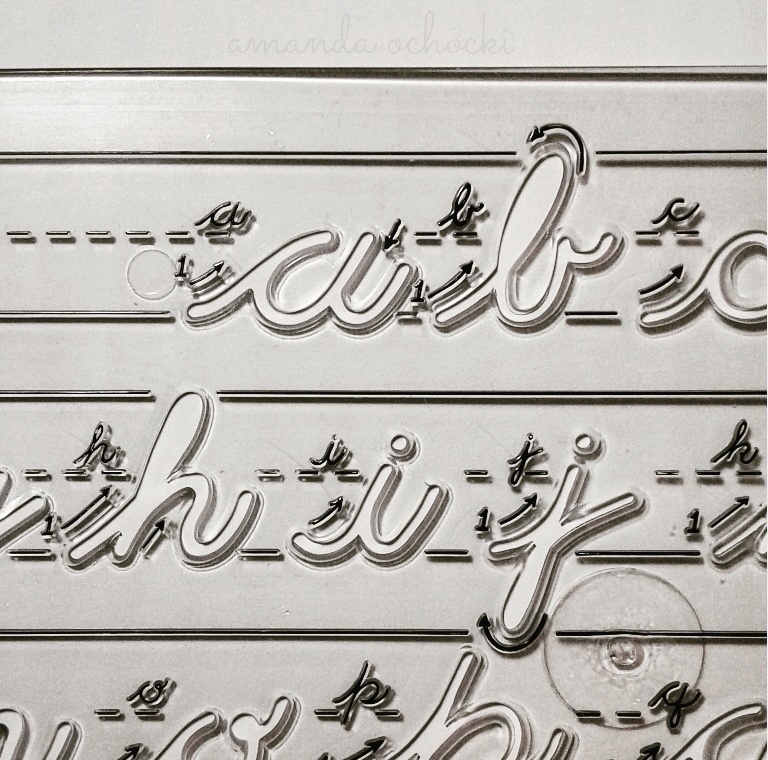 amanda ochocki
a b c
1 a 1 b c
h i j k
1 h i 1 j 1
o p q
o p